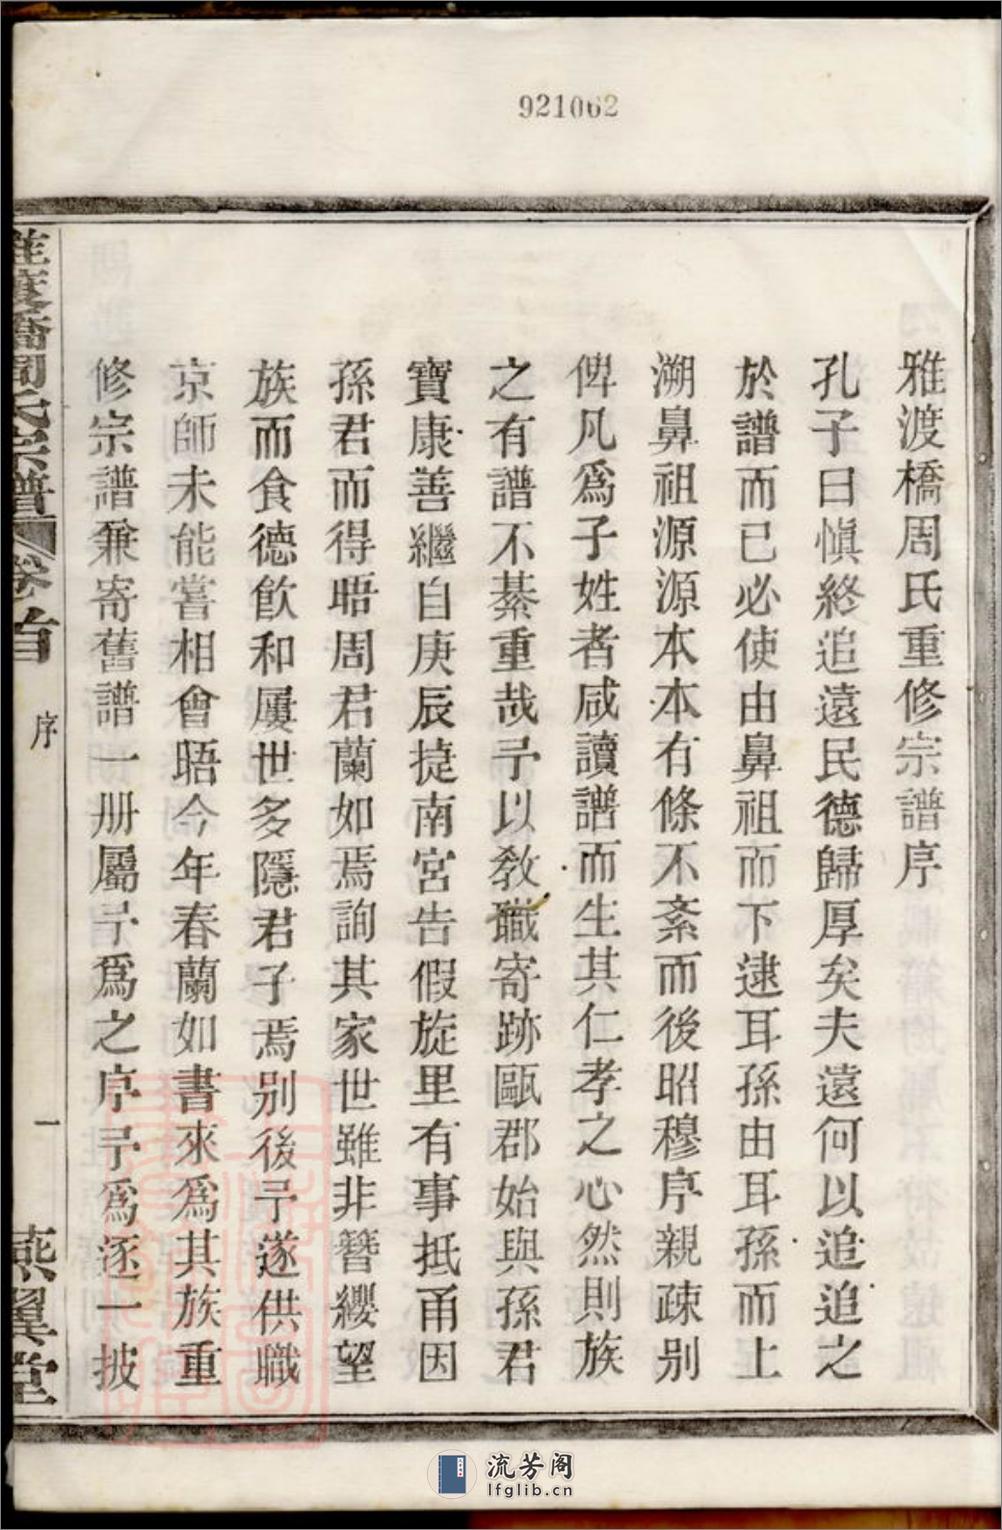 921062
雅渡橋周氏重修宗譜序
孔子曰愼終追遠民德歸厚矣夫遠何以追追之
於譜而已必使由鼻祖而下逮耳孫由耳孫而上
溯鼻祖源源本本有條不紊而後昭穆序親疎别
俾凡爲子姓者咸讀譜而生其仁孝之心然則族
之有譜不綦重哉予以敎職寄跡甌郡始與孫君
寶康善繼自庚辰捷南宮告假旋里有事抵甬因
孫君而得晤周君蘭如焉詢其家世雖非簪纓望
族而食德飮和屢世多隱君子焉别後予遂供職
京師未能嘗相會晤今年春蘭如書來爲其族重
修宗譜兼寄舊譜一册屬予爲之序予爲逐一披
雅渡橋周氏宗譜
卷首
序
一
燕翼堂
流芳阁
lfglib.cn